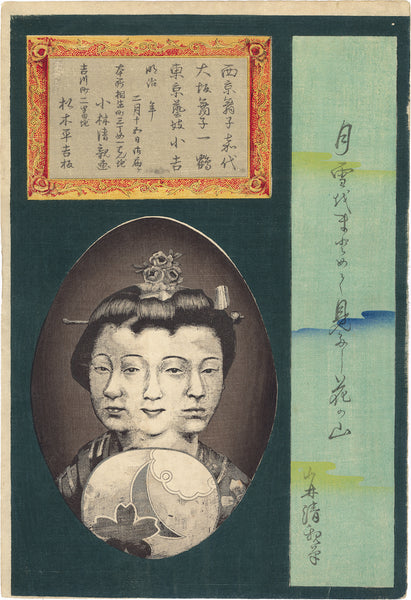 月雪まとめて見花の山
清親筆
西京舞子嘉代
大坂舞子一鶴
東京藝妓小吉
明治　年
二月十五日御届
本所相生町三丁め一番地
小林清親画
吉川町二番地
松木平吉板